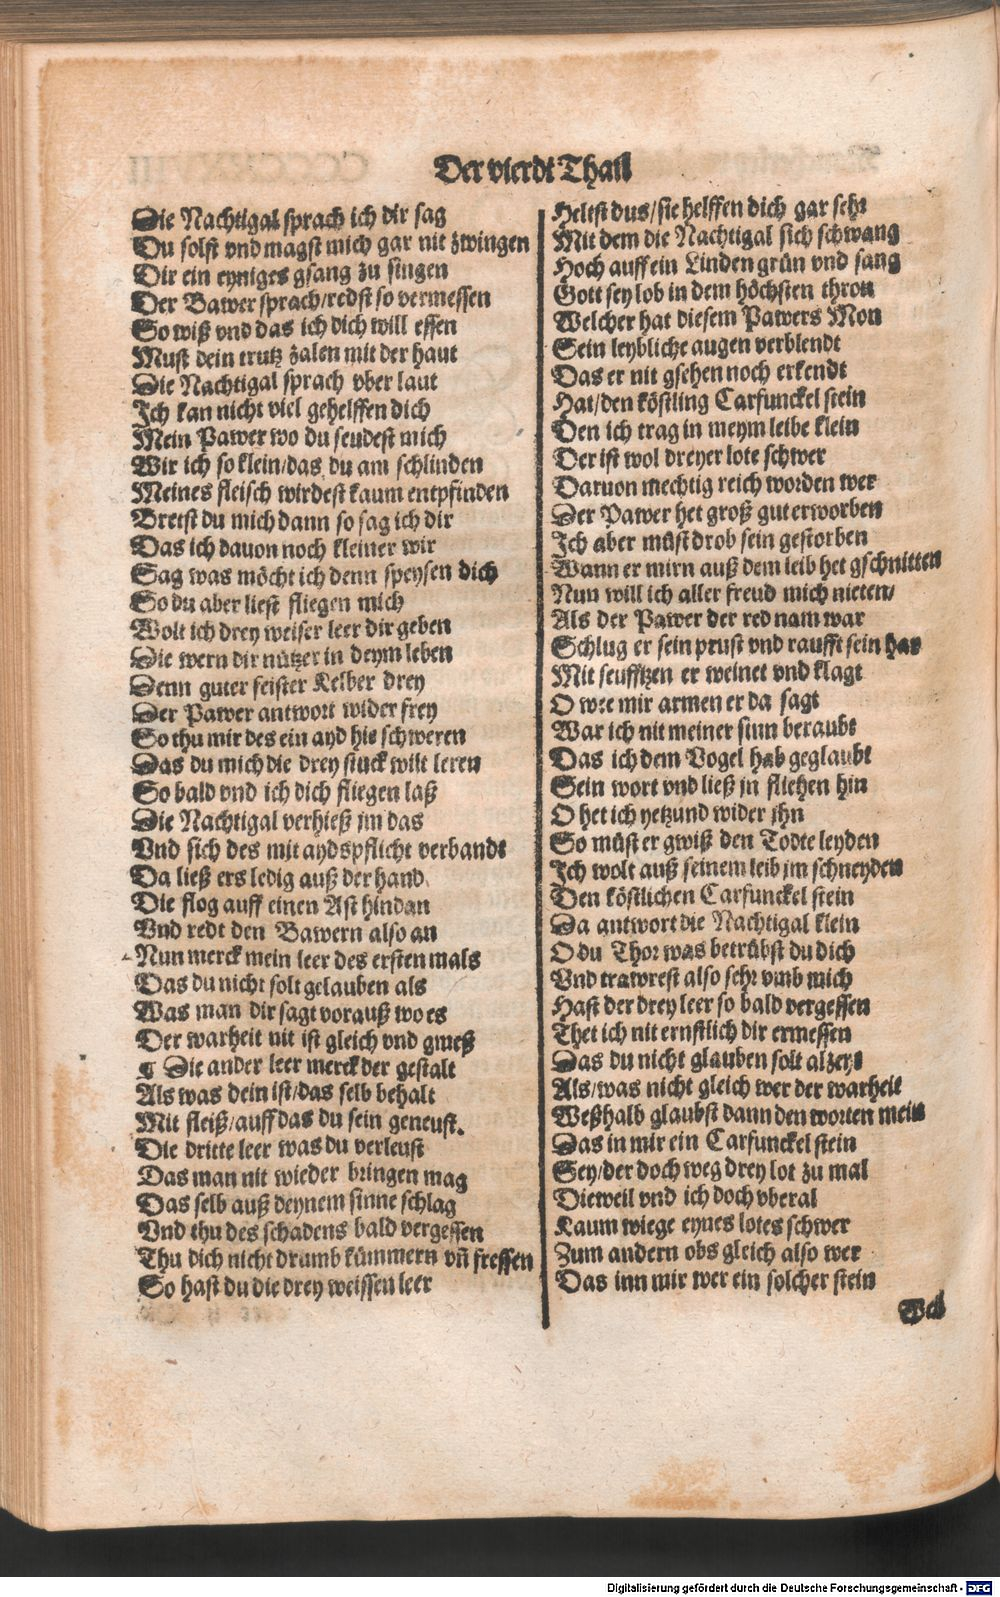 Der vierdt Thail
Die Nachtigal sprach ich dir sag
Du solst vnd magst mich gar nit zwingen
Dir ein eyniges gsang zu singen
Der Bawer sprach/redst so vermessen
So wiß vnd das ich dich will essen
Must dein trutz zalen mit der haut
Die Nachtigal sprach vber laut
Ich kan nicht viel gehelffen dich
Mein Pawer wo du seudest mich
Wir ich so klein/das du am schlinden
Meines fleisch wirdest kaum entpfinden
Bretst du mich dann so sag ich dir
Das ich dauon noch kleiner wir
Sag was möcht ich denn speysen dich
So du aber liest fliegen mich
Wolt ich drey weiser leer dir geben
Die wern dir nützer in deym leben
Denn guter feister Kelber drey
Der Pawer antwort wider frey
So thu mir des ein ayd hie schweren
Das du mich die drey stuck wilt leren
So bald vnd ich dich fliegen laß
Die Nachtigal verhieß jm das
Vnd sich des mit aydspflicht verbandt
Da ließ ers ledig auß der hand
Die flog auff einen Ast hindan
Vnd redt den Bawern also an
Nun merck mein leer des ersten mals
Das du nicht solt gelauben als
Was man dir sagt vorauß wo es
Der warheit nit ist gleich vnd gmeß
¶ Die ander leer merck der gestalt
Als was dein ist/das selb behalt
Mit fleiß/auff das du sein geneust.
Die dritte leer was du verleust
Das man nit wieder bringen mag
Das selb auß deynem sinne schlag
Vnd thu des schadens bald vergessen
Thu dich nicht drumb kümmern vñ fressen
So hast du die drey weissen leer
Heltst dus/sie helffen dich gar sehr
Mit dem die Nachtigal sich schwang
Hoch auff ein Linden grün vnd sang
Gott sey lob in dem höchsten thron
Welcher hat diesem Pawers Mon
Sein leybliche augen verblendt
Das er nit gsehen noch erkendt
Hat/den köstling Carfunckel stein
Den ich trag in meym leibe klein
Der ist wol dreyer lote schwer
Daruon mechtig reich worden wer
Der Pawer het groß gut erworben
Ich aber müst drob sein gestorben
Wann er mirn auß dem leib het gschnitten
Nun will ich aller freud mich nieten/
Als der Pawer der red nam war
Schlug er sein prust vnd raufft sein har
Mit seufftzen er weinet vnd klagt
O wee mir armen er da sagt
War ich nit meiner sinn beraubt
Das ich dem Vogel hab geglaubt
Sein wort vnd ließ jn fliehen hin
O het ich yetzund wider jhn
So müst er gwiß den Todte leyden
Ich wolt auß seinem leib jm schneyden
Den köstlichen Carfunckel stein
Da antwort die Nachtigal klein
O du Thor was betrübst du dich
Vnd trawrest also sehr vmb mich
Hast der drey leer so bald vergessen
Thet ich nit ernstlich dir ermessen
Das du nicht glauben solt alzeyt
Als/was nicht gleich wer der warheit
Weßhalb glaubst dann den worten mein
Das in mir ein Carfunckel stein
Sey/der doch weg drey lot zu mal
Dieweil vnd ich doch vberal
Kaum wiege eynes lotes schwer
Zum andern obs gleich also wer
Das inn mir wer ein solcher stein
Digitalisierung gefördert durch die Deutsche Forschungsgemeinschaft - DFG